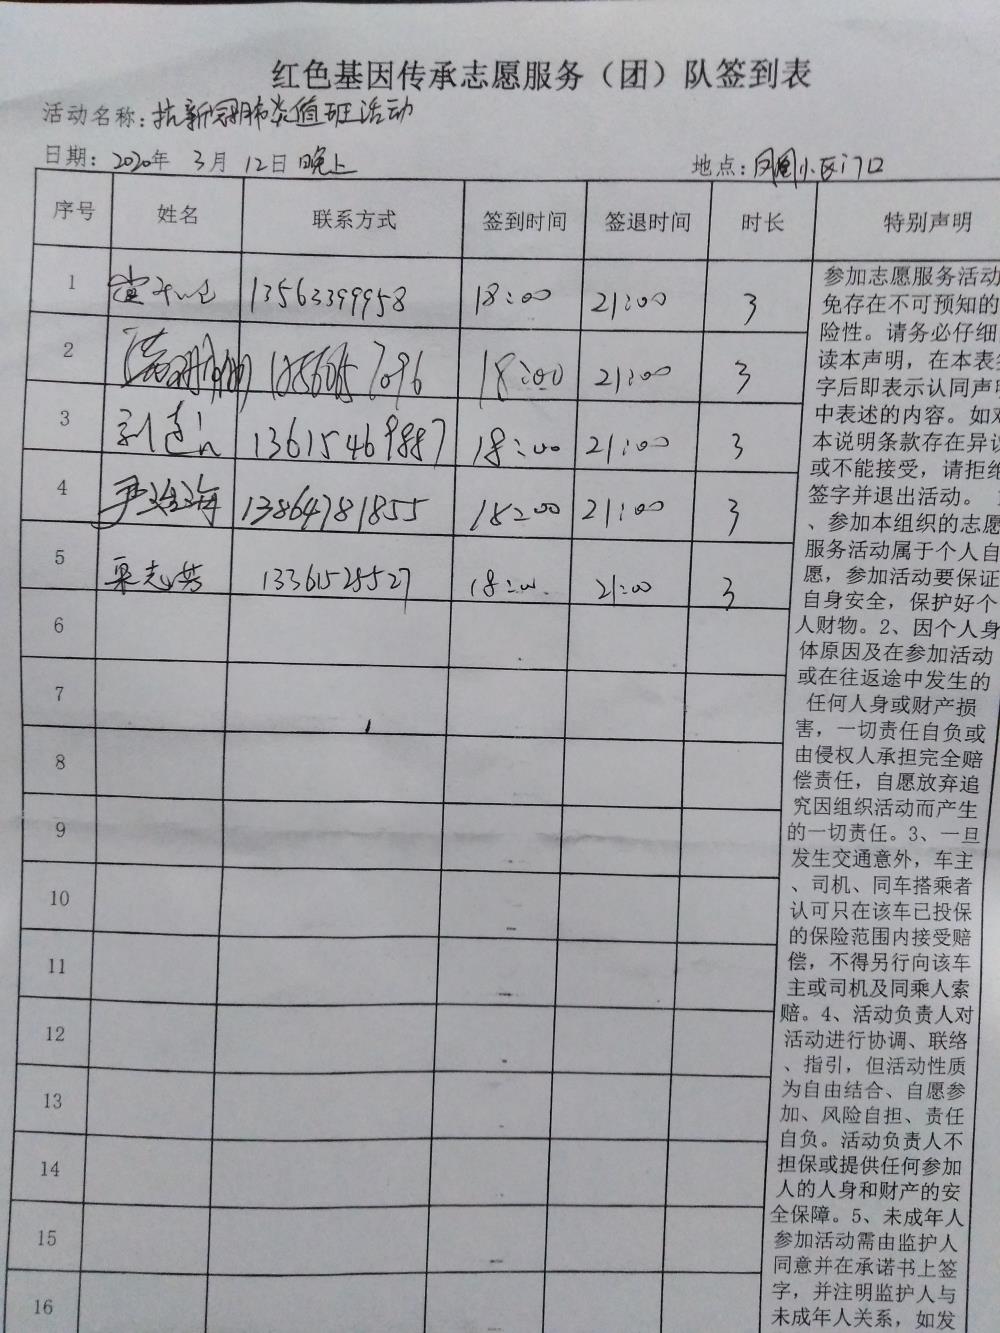 红色基因传承志愿服务（团）队签到表
活动名称：抗新冠肺炎值班活动
日期：2020年 3月 12日 晚上 地点：凤凰小区门口
序号 姓名 联系方式 签到时间 签退时间 时长 特别声明
1 13563399958 18:00 21:00 3
2 18:00 21:00 3
3 13615469887 18:00 21:00 3
4 13864781855 18:00 21:00 3
5 栗志芳 13361525527 18:00 21:00 3
6
7
8
9
10
11
12
13
14
15
16
参加志愿服务活动
免存在不可预知的
险性。请务必仔细
读本声明，在本表签
字后即表示认同声明
中表述的内容。如对
本说明条款存在异议
或不能接受，请拒绝
签字并退出活动。
、参加本组织的志愿
服务活动属于个人自
愿，参加活动要保证
自身安全，保护好个
人财物。2、因个人身
体原因及在参加活动
或在往返途中发生的
任何人身或财产损
害，一切责任自负或
由侵权人承担完全赔
偿责任，自愿放弃追
究因组织活动而产生
的一切责任。3、一旦
发生交通意外，车主
、司机、同车搭乘者
认可只在该车已投保
的保险范围内接受赔
偿，不得另行向该车
主或司机及同乘人索
赔。4、活动负责人对
活动进行协调、联络
、指引，但活动性质
为自由结合、自愿参
加、风险自担、责任
自负。活动负责人不
担保或提供任何参加
人的人身和财产的安
全保障。5、未成年人
参加活动需由监护人
同意并在承诺书上签
字，并注明监护人与
未成年人关系，如发